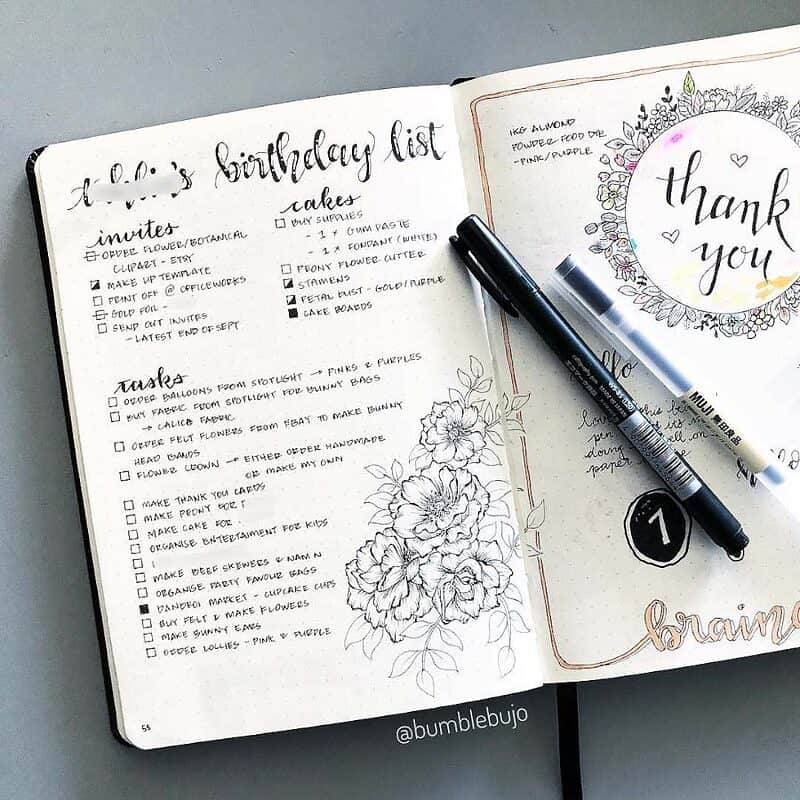 birthday list
invites
ORDER FLOWER/BOTANICAL
CLIPART - ETSY
MAKE UP TEMPLATE
PRINT OFF @ OFFICEWORKS
GOLD FOIL -
SEND OUT INVITES
- LATEST END OF SEPT
cakes
BUY SUPPLIES
- 1 x GUM PASTE
- 1 x FONDANT (WHITE)
PEONY FLOWER CUTTER
STAMENS
PETAL DUST - GOLD/PURPLE
CAKE BOARDS
tasks
ORDER BALLOONS FROM SPOTLIGHT → PINKS & PURPLES
BUY FABRIC FROM SPOTLIGHT FOR BUNNY BAGS
→ CALICO FABRIC
ORDER FELT FLOWERS FROM EBAY TO MAKE BUNNY
HEAD BANDS
FLOWER CROWN → EITHER ORDER HANDMADE
OR MAKE MY OWN
MAKE THANK YOU CARDS
MAKE PEONY FOR
MAKE CAKE FOR
ORGANISE ENTERTAIMENT FOR KIDS
MAKE BEEF SKEWERS & NAM N
ORGANISE PARTY FAVOUR BAGS
DANDEOI MARKET - CUPCAKE CUPS
BUY FELT & MAKE FLOWERS
MAKE BUNNY EARS
ORDER LOLLIES - PINK & PURPLE
55
@bumblebujo
1KG ALMOND
POWDER FOOD DIE
- PINK/PURPLE
thank
you
MUJI 無印良品
7